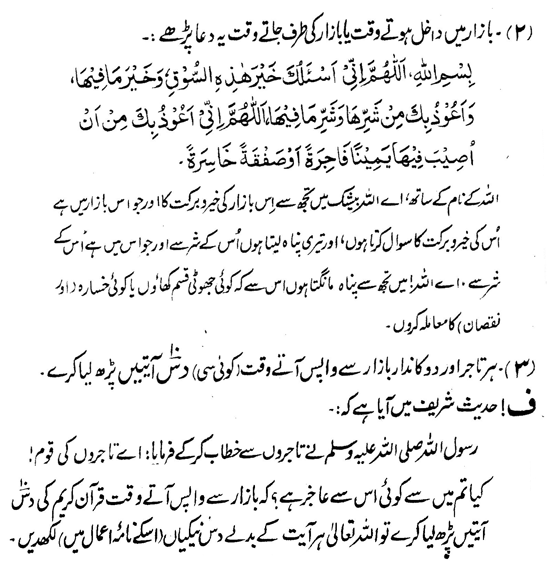 (۲)۔ بازار میں داخل ہوتے وقت یا بازار کی طرف جاتے وقت یہ دعا پڑھے :۔
بِسْمِ اللهِ، اَللّٰهُمَّ اِنِّىْ اَسْئَلُكَ خَيْرَ هٰذِهِ السُّوْقِ وَخَيْرَ مَا فِيْهَا،
وَاَعُوْذُ بِكَ مِنْ شَرِّهَا وَشَرِّ مَا فِيْهَا، اَللّٰهُمَّ اِنِّىْ اَعُوْذُ بِكَ مِنْ اَنْ
اُصِيْبَ فِيْهَا يَمِيْنًا فَاجِرَةً اَوْ صَفْقَةً خَاسِرَةً۔
اللہ کے نام کے ساتھ، اے اللہ بیشک میں تجھ سے اِس بازار کی خیر و برکت کا اور جو اس بازار میں ہے
اُس کی خیر و برکت کا سوال کرتا ہوں، اور تیری پناہ لیتا ہوں اُس کے شر سے اور جو اس میں ہے اُس کے
شر سے۔ اے اللہ! میں تجھ سے پناہ مانگتا ہوں اس سے کہ کوئی جھوٹی قسم کھاؤں یا کوئی خسارہ (اور
نقصان) کا معاملہ کروں۔
(۳)۔ ہر تاجر اور دوکاندار بازار سے واپس آتے وقت (کوئی سی) دس آیتیں پڑھ لیا کرے۔
ف! حدیث شریف میں آیا ہے کہ :۔
رسول اللہ صلی اللہ علیہ وسلم نے تاجروں سے خطاب کر کے فرمایا : اے تاجروں کی قوم!
کیا تم میں سے کوئی اس سے عاجز ہے؟ کہ بازار سے واپس آتے وقت قرآن کریم کی دس
آیتیں پڑھ لیا کرے تو اللہ تعالیٰ ہر آیت کے بدلے دس نیکیاں (اسکے نامۂ اعمال میں) لکھدیں۔